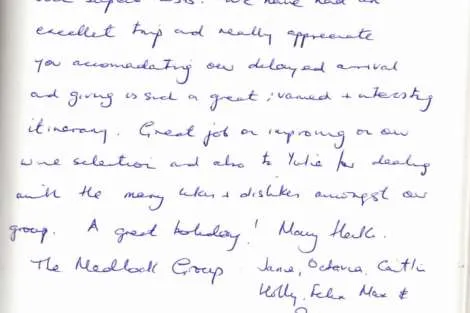 We have had an
excellet trip and really appreciate
you accomodating our delayed arrival
and giving us such a great, varied + interesting
itinerary. Great job on improving on our
wine selection and also to Yulie for dealing
with the many likes + dislikes amongst our
group. A great holiday! Many thanks.
The Medlock Group Jane, Octavia, Caitlin
Holly, Felix Max &